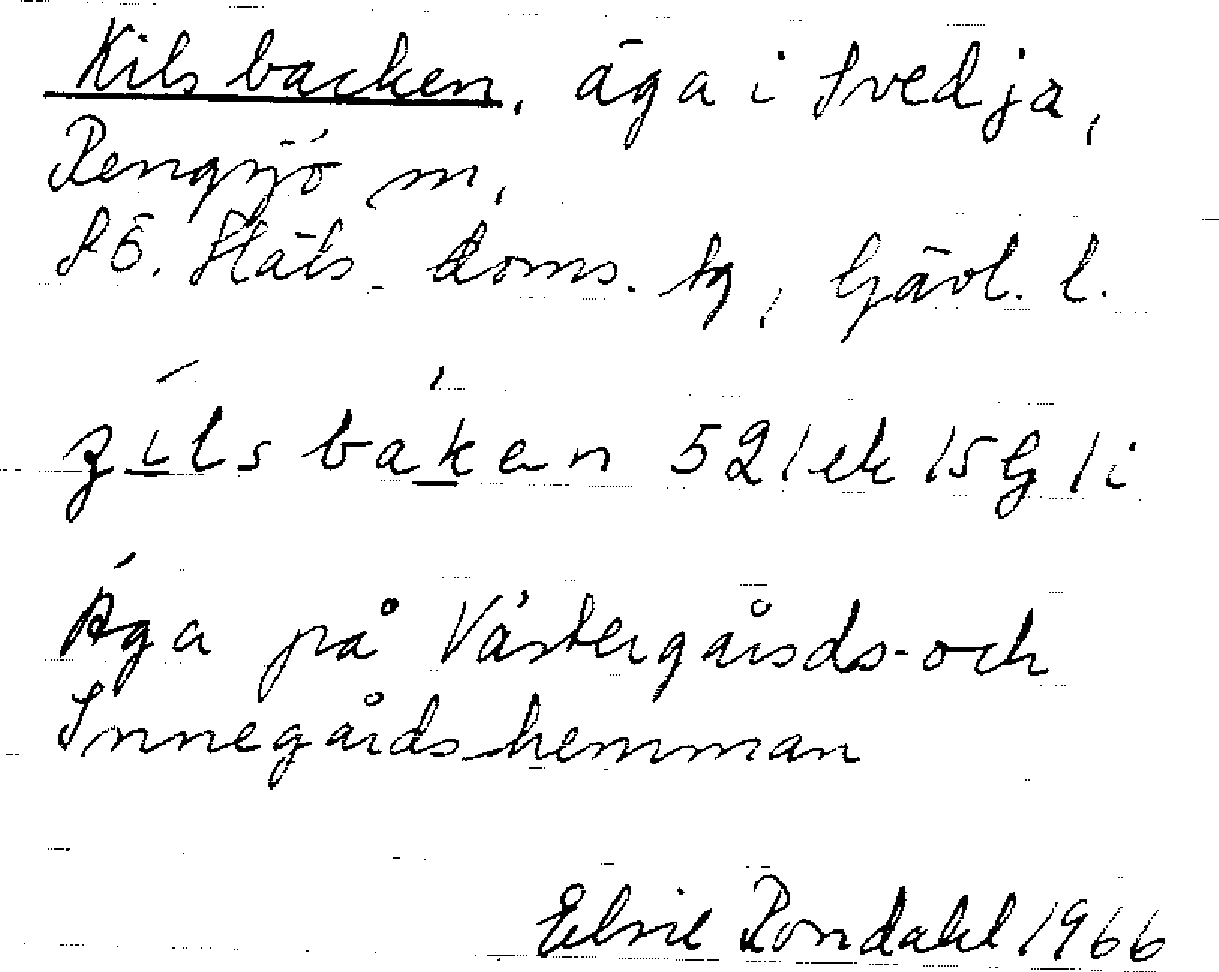 Kilsbacken, äga i Svedja,
Rengsjö sn,
SÖ. Häls. doms. tg, Gävl. l.
zilsbaken 521ek 15G 1i
Äga på Västergårds- och
Innegårdshemman
Elsie Rondahl 1966